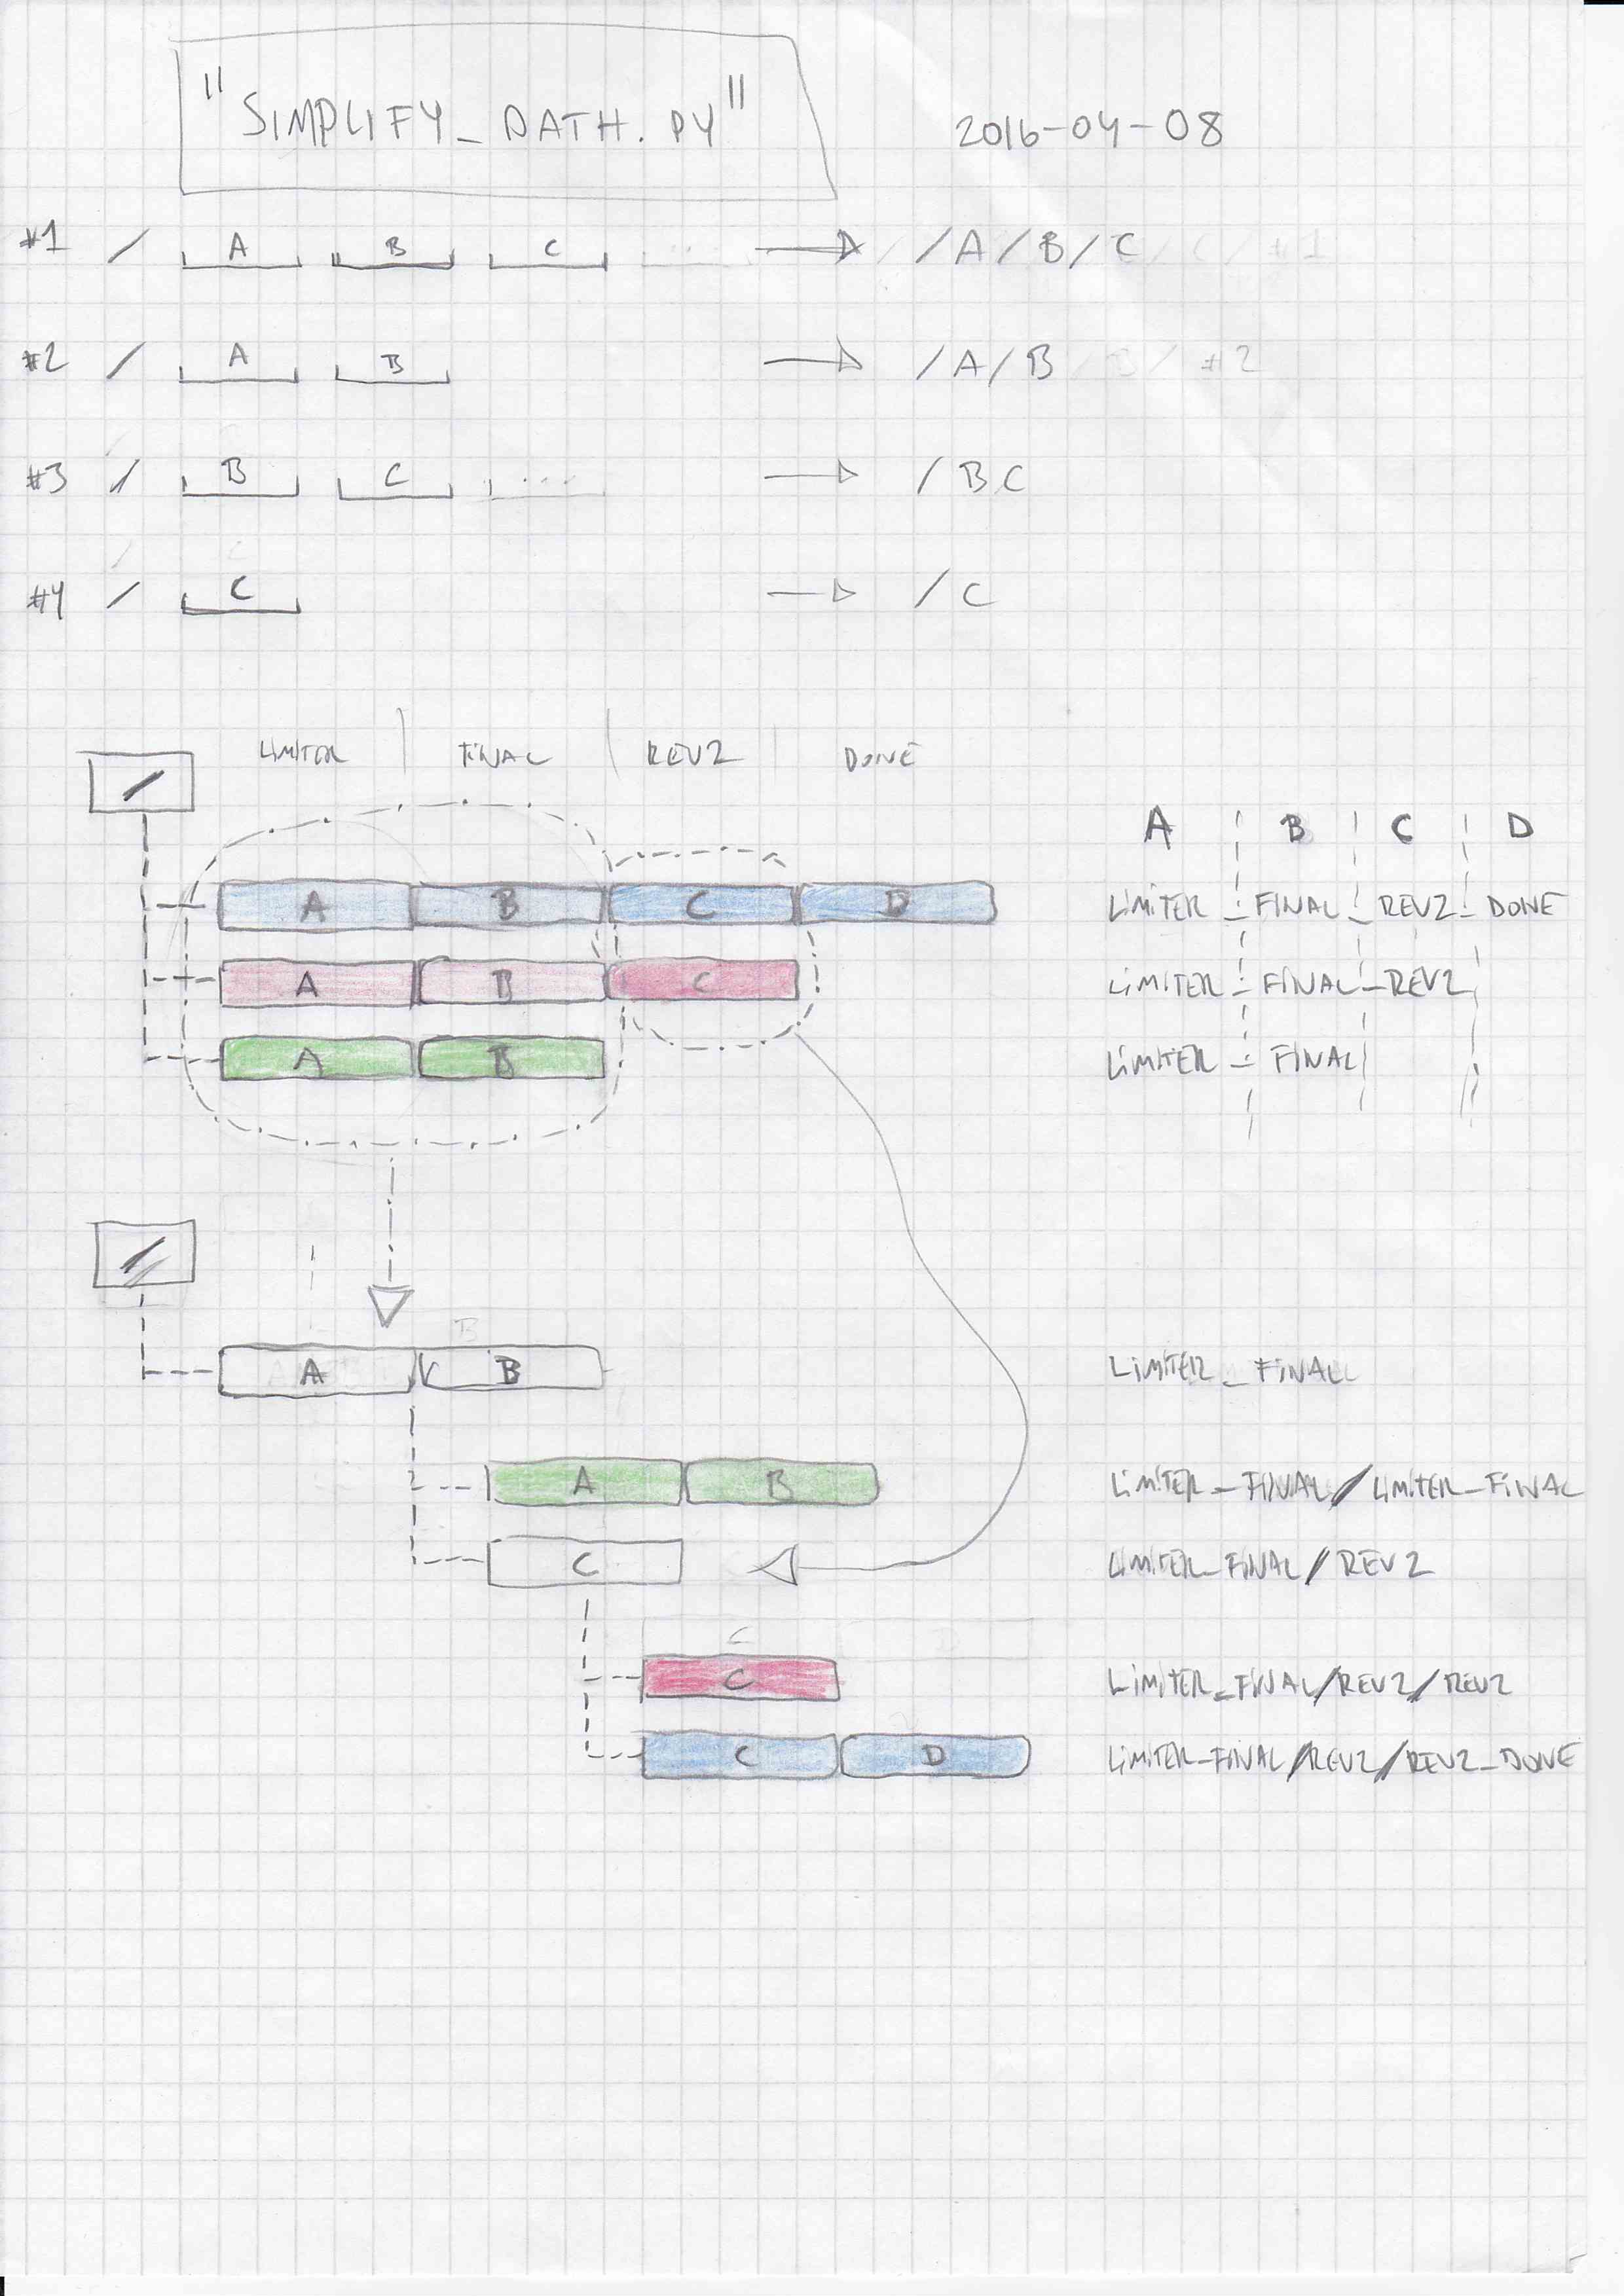 "SIMPLIFY_PATH.PY" 2016-04-08
#1 / A B C → /A/B/C
#2 / A B → /A/B
#3 / B C ... → /BC
#4 / C → /C
LIMITER | FINAL | REV2 | DONE
/
A B C D
A B C D LIMITER_FINAL_REV2_DONE
A B C LIMITER_FINAL_REV2
A B LIMITER_FINAL
/
A B LIMITER_FINAL
A B LIMITER_FINAL/LIMITER_FINAL
C LIMITER_FINAL/REV2
C LIMITER_FINAL/REV2/REV2
C D LIMITER_FINAL/REV2/REV2_DONE